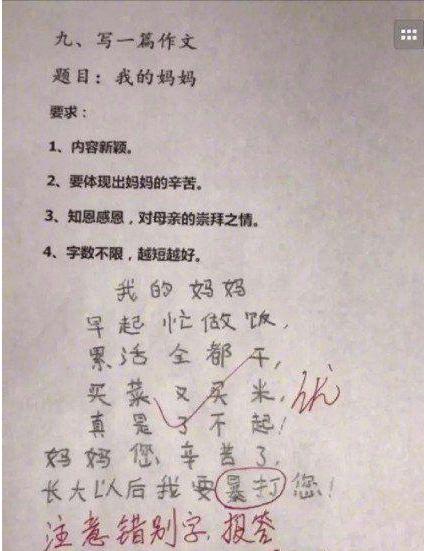 九、写一篇作文
题目：我的妈妈
要求：
1、内容新颖。
2、要体现出妈妈的辛苦。
3、知恩感恩，对母亲的崇拜之情。
4、字数不限，越短越好。
我的妈妈
早起忙做饭，
累活全都干，
买菜又买米，
真是了不起！
优
妈妈您辛苦了，
长大以后我要暴打您！
注意错别字，报答